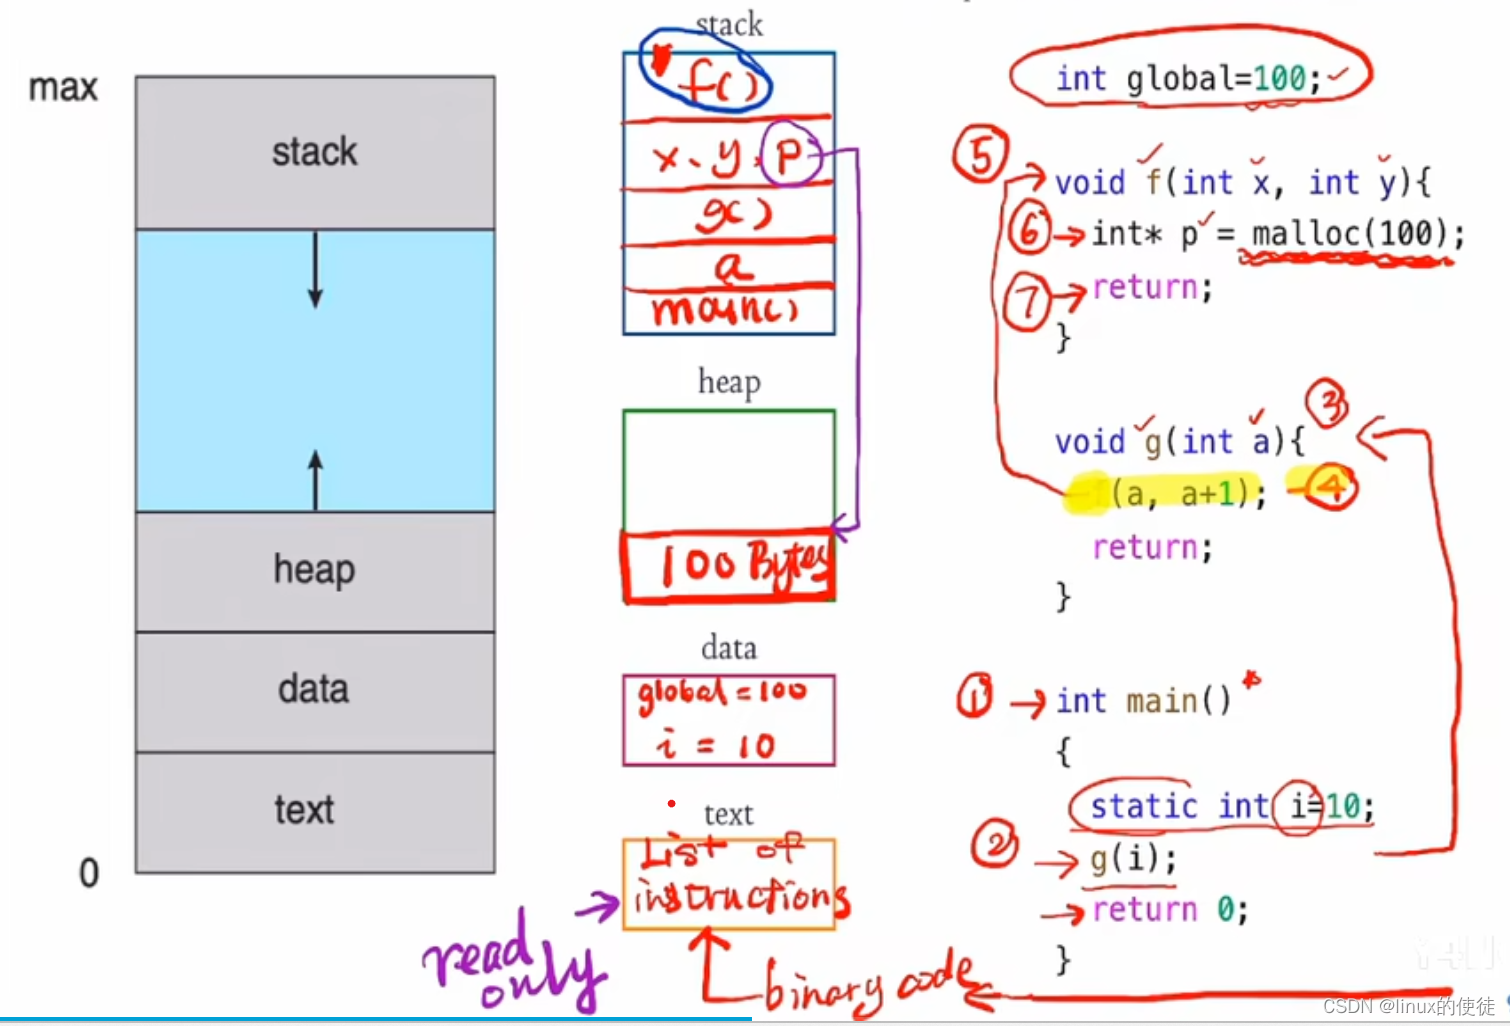 max
stack
heap
data
text
0
stack
f()
x、y、p
g()
a
main()
heap
100 Bytes
data
global = 100
i = 10
text
List of
instructions
read
only
binary code
int global=100;
⑤
void f(int x, int y){
⑥ int* p = malloc(100);
⑦ return;
}
③
void g(int a){
(a, a+1); ④
return;
}
① int main() *
{
static int i=10;
② g(i);
return 0;
}
CSDN @linux的使徒